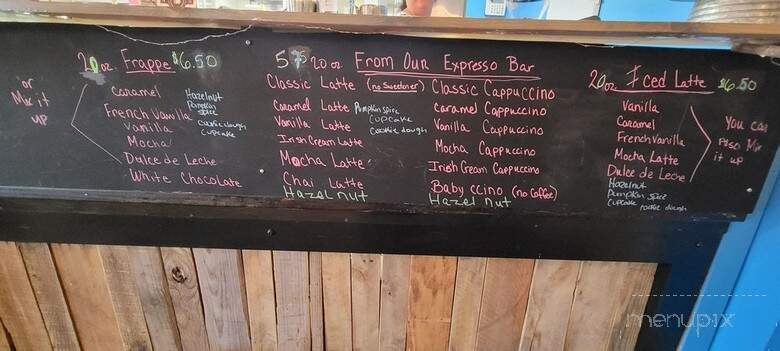 20oz Frappe $6.50
or
Mix it
up
caramel
French Vanilla
Vanilla
Mocha
Dulce de Leche
White Chocolate
Hazelnut
Pumpkin
spice
cookie dough
cupcake
20oz From Our Expresso Bar
Classic Latte (no Sweetener)
Caramel Latte
Vanilla Latte
Irish Cream Latte
Mocha Latte
Chai Latte
Hazel nut
Pumpkin spice
cupcake
cookie dough
Classic Cappuccino
Caramel Cappuccino
Vanilla Cappuccino
Mocha Cappuccino
Irish Cream Cappuccino
Baby ccino (no Coffee)
Hazel nut
20oz Iced Latte $6.50
Vanilla
Caramel
French Vanilla
Mocha Latte
Dulce de Leche
Hazelnut
Pumpkin spice
cupcake cookie dough
You can
Also Mix
it up
menupix